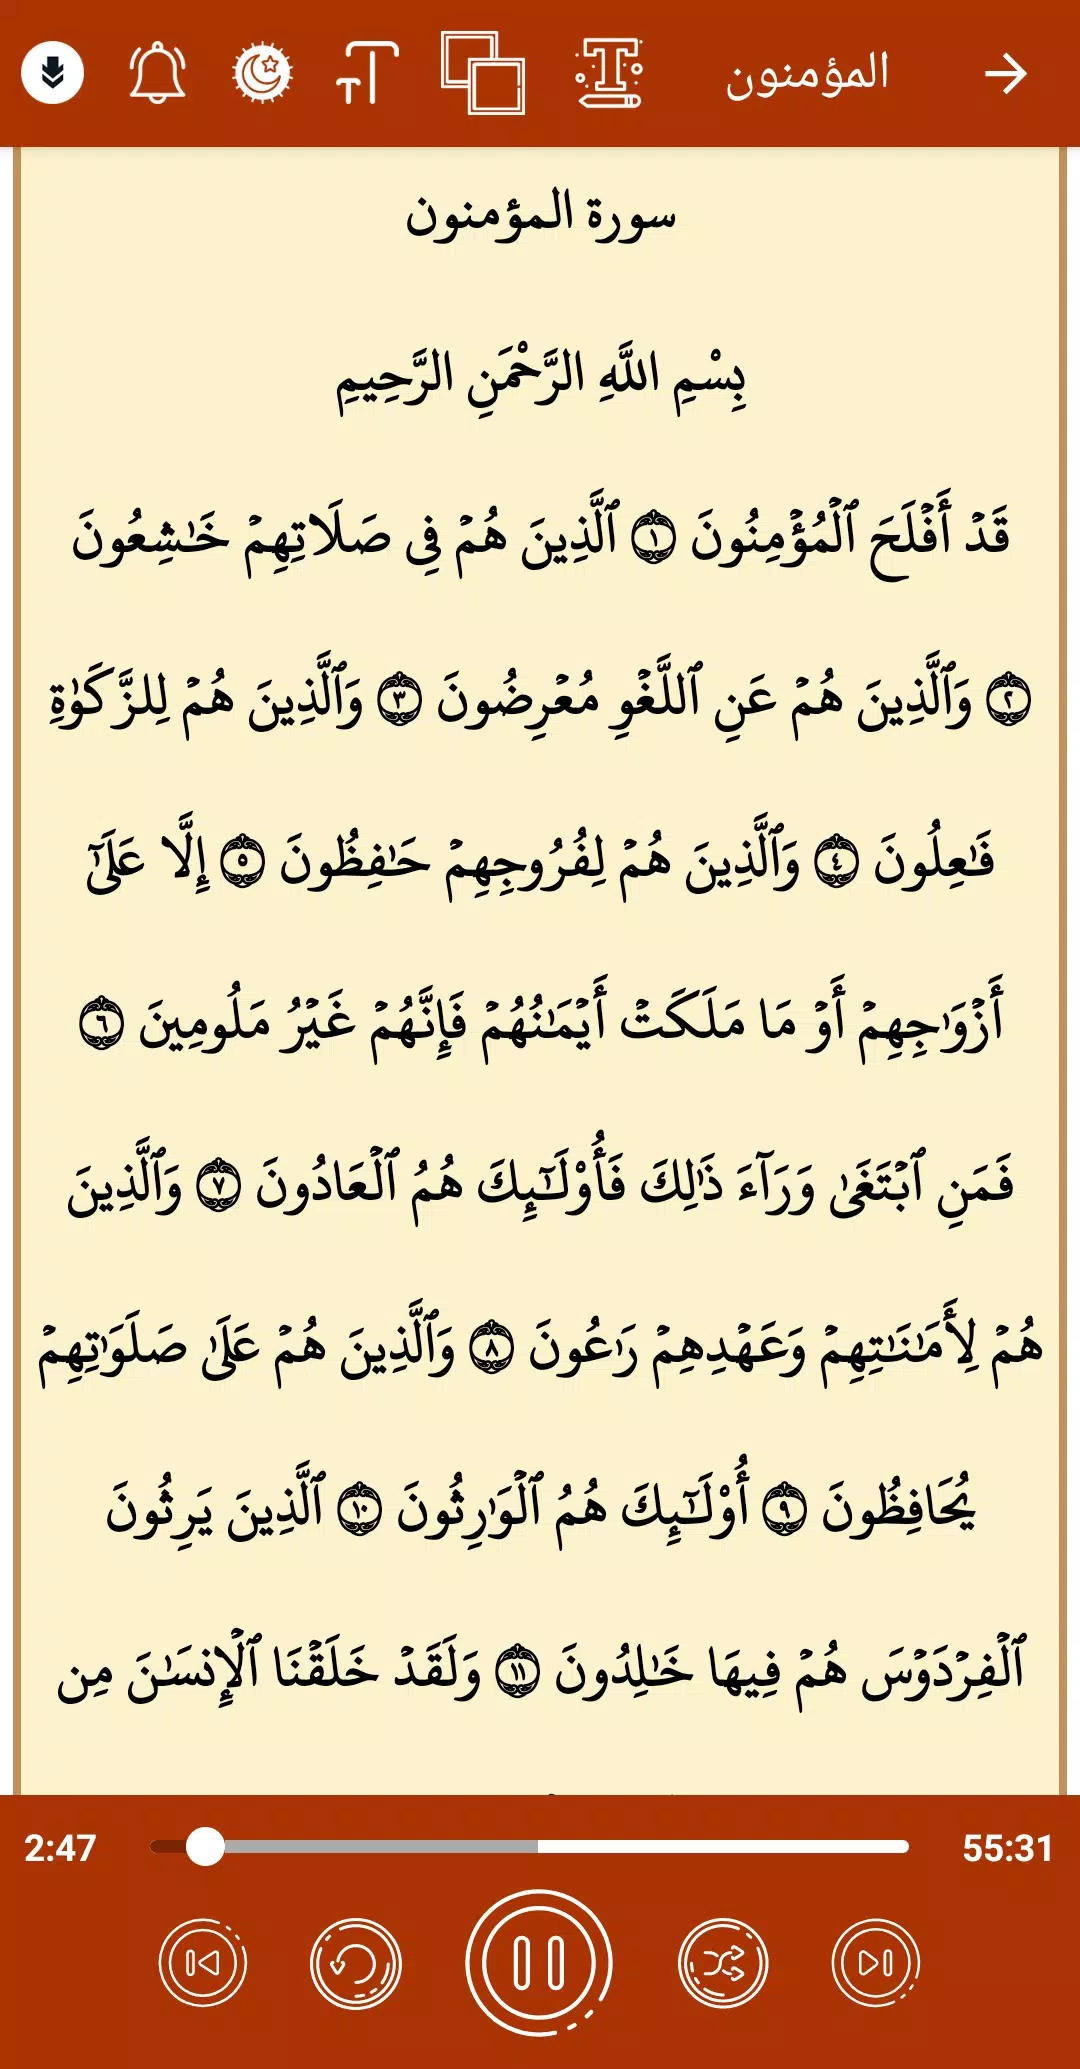 المؤمنون
سورة المؤمنون
بِسْمِ اللَّهِ الرَّحْمَنِ الرَّحِيمِ
قَدۡ أَفۡلَحَ ٱلۡمُؤۡمِنُونَ ١ ٱلَّذِينَ هُمۡ فِى صَلَاتِهِمۡ خَٰشِعُونَ
٢ وَٱلَّذِينَ هُمۡ عَنِ ٱللَّغۡوِ مُعۡرِضُونَ ٣ وَٱلَّذِينَ هُمۡ لِلزَّكَوٰةِ
فَٰعِلُونَ ٤ وَٱلَّذِينَ هُمۡ لِفُرُوجِهِمۡ حَٰفِظُونَ ٥ إِلَّا عَلَىٰٓ
أَزۡوَٰجِهِمۡ أَوۡ مَا مَلَكَتۡ أَيۡمَٰنُهُمۡ فَإِنَّهُمۡ غَيۡرُ مَلُومِينَ ٦
فَمَنِ ٱبۡتَغَىٰ وَرَآءَ ذَٰلِكَ فَأُوْلَٰٓئِكَ هُمُ ٱلۡعَادُونَ ٧ وَٱلَّذِينَ
هُمۡ لِأَمَٰنَٰتِهِمۡ وَعَهۡدِهِمۡ رَٰعُونَ ٨ وَٱلَّذِينَ هُمۡ عَلَىٰ صَلَوَٰتِهِمۡ
يُحَافِظُونَ ٩ أُوْلَٰٓئِكَ هُمُ ٱلۡوَٰرِثُونَ ١٠ ٱلَّذِينَ يَرِثُونَ
ٱلۡفِرۡدَوۡسَ هُمۡ فِيهَا خَٰلِدُونَ ١١ وَلَقَدۡ خَلَقۡنَا ٱلۡإِنسَٰنَ مِن
2:47 55:31